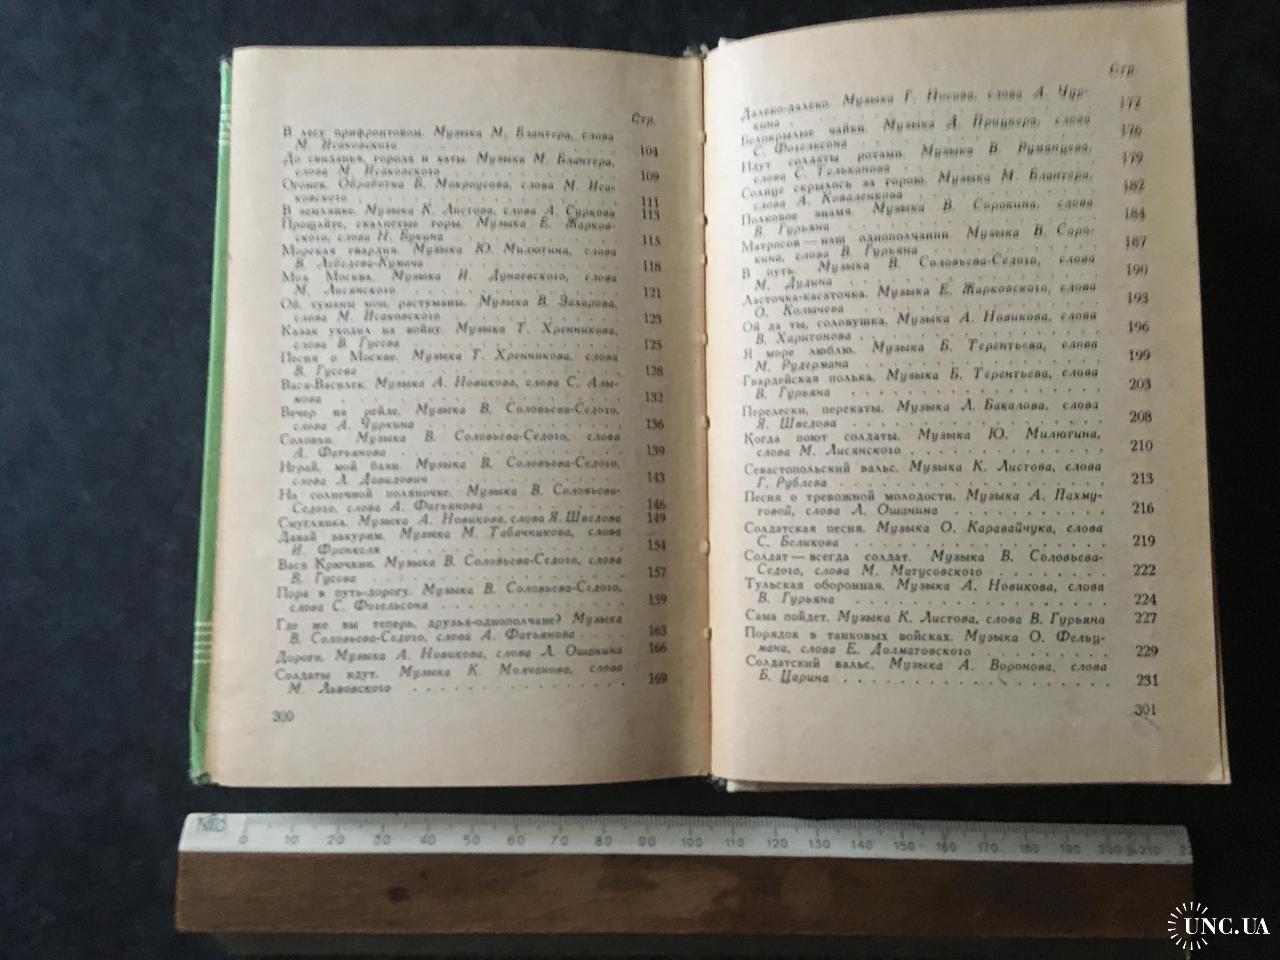 Стр.
В лесу прифронтовом. Музыка М. Блантера, слова
М. Исаковского 104
До свиданья, города и хаты. Музыка М. Блантера,
слова М. Исаковского 109
Огонек. Обработка Б. Мокроусова, слова М. Иса-
ковского 111
В землянке. Музыка К. Листова, слова А. Суркова 113
Прощайте, скалистые горы. Музыка Е. Жарков-
ского, слова Н. Букина 115
Морская гвардия. Музыка Ю. Милютина, слова
В. Лебедева-Кумача 118
Моя Москва. Музыка И. Дунаевского, слова
М. Лисянского 121
Ой, туманы мои, растуманы. Музыка В. Захарова,
слова М. Исаковского 123
Казак уходил на войну. Музыка Т. Хренникова,
слова В. Гусева 125
Песня о Москве. Музыка Т. Хренникова, слова
В. Гусева 128
Вася-Василек. Музыка А. Новикова, слова С. Алы-
мова 132
Вечер на рейде. Музыка В. Соловьева-Седого,
слова А. Чуркина 136
Соловьи. Музыка В. Соловьева-Седого, слова
А. Фатьянова 139
Играй, мой баян. Музыка В. Соловьева-Седого,
слова Л. Давидович 143
На солнечной поляночке. Музыка В. Соловьева-
Седого, слова А. Фатьянова 146
Смуглянка. Музыка А. Новикова, слова Я. Шведова 149
Давай закурим. Музыка М. Табачникова, слова
И. Френкеля 154
Вася Крючкин. Музыка В. Соловьева-Седого, слова
В. Гусева 157
Пора в путь-дорогу. Музыка В. Соловьева-Седого,
слова С. Фогельсона 159
Где же вы теперь, друзья-однополчане? Музыка
В. Соловьева-Седого, слова А. Фатьянова 163
Дороги. Музыка А. Новикова, слова Л. Ошанина 166
Солдаты идут. Музыка К. Молчанова, слова
М. Львовского 169
300
Стр.
Далеко-далеко. Музыка Г. Носова, слова А. Чур-
кина 172
Белокрылые чайки. Музыка Д. Прицкера, слова
С. Фогельсона 176
Идут солдаты ротами. Музыка В. Румянцева,
слова С. Тельканова 179
Солнце скрылось за горою. Музыка М. Блантера,
слова А. Коваленкова 182
Полковое знамя. Музыка В. Сорокина, слова
В. Гурьяна 184
Матросов — наш однополчанин. Музыка В. Соро-
кина, слова В. Гурьяна 187
В путь. Музыка В. Соловьева-Седого, слова
М. Дудина 190
Ласточка-касаточка. Музыка Е. Жарковского, слова
О. Колычева 193
Ой да ты, соловушка. Музыка А. Новикова, слова
В. Харитонова 196
Я море люблю. Музыка Б. Терентьева, слова
М. Рудермана 199
Гвардейская полька. Музыка Б. Терентьева, слова
В. Гурьяна 203
Перелески, перекаты. Музыка Л. Бакалова, слова
Я. Шведова 208
Когда поют солдаты. Музыка Ю. Милютина,
слова М. Лисянского 210
Севастопольский вальс. Музыка К. Листова, слова
Г. Рублева 213
Песня о тревожной молодости. Музыка А. Пахму-
товой, слова Л. Ошанина 216
Солдатская песня. Музыка О. Каравайчука, слова
С. Беликова 219
Солдат — всегда солдат. Музыка В. Соловьева-
Седого, слова М. Матусовского 222
Тульская оборонная. Музыка А. Новикова, слова
В. Гурьяна 224
Сама пойдет. Музыка К. Листова, слова В. Гурьяна 227
Порядок в танковых войсках. Музыка О. Фельц-
мана, слова Е. Долматовского 229
Солдатский вальс. Музыка А. Воронова, слова
Б. Царина 231
301
0 10 20 30 40 50 60 70 80 90 100 110 120 130 140 150 160 170 180 190 200 210
UNC.UA